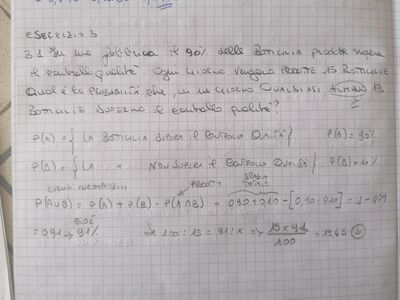 ESERCIZIO 3
3.1 In una fabbrica il 90% delle BOTTIGLIE prodotte supera
il controllo qualità. Ogni GIORNO vengono PRODOTTE 15 BOTTIGLIE
Qual è la PROBABILITÀ che, in un GIORNO QUALSIASI, ALMENO 13
BOTTIGLIE SUPERINO il controllo qualità?
P(A) = { LA BOTTIGLIA SUPERA IL CONTROLLO QUALITÀ } P(A) = 90%
P(B) = { LA " NON SUPERA IL CONTROLLO QUALITÀ } P(B) = 10%
EVENTI INCOMPATIBILI PRODOTTO SPAZIO TOTALE
P(A∪B) = P(A) + P(B) - P(A∩B) = 0,90 + 0,10 - [0,90 · 0,10] = 1 - 0,09
CIOÈ
= 0,91 → 91% Se 100 : 15 = 91 : x => 15 x 91 / 100 = 13,65